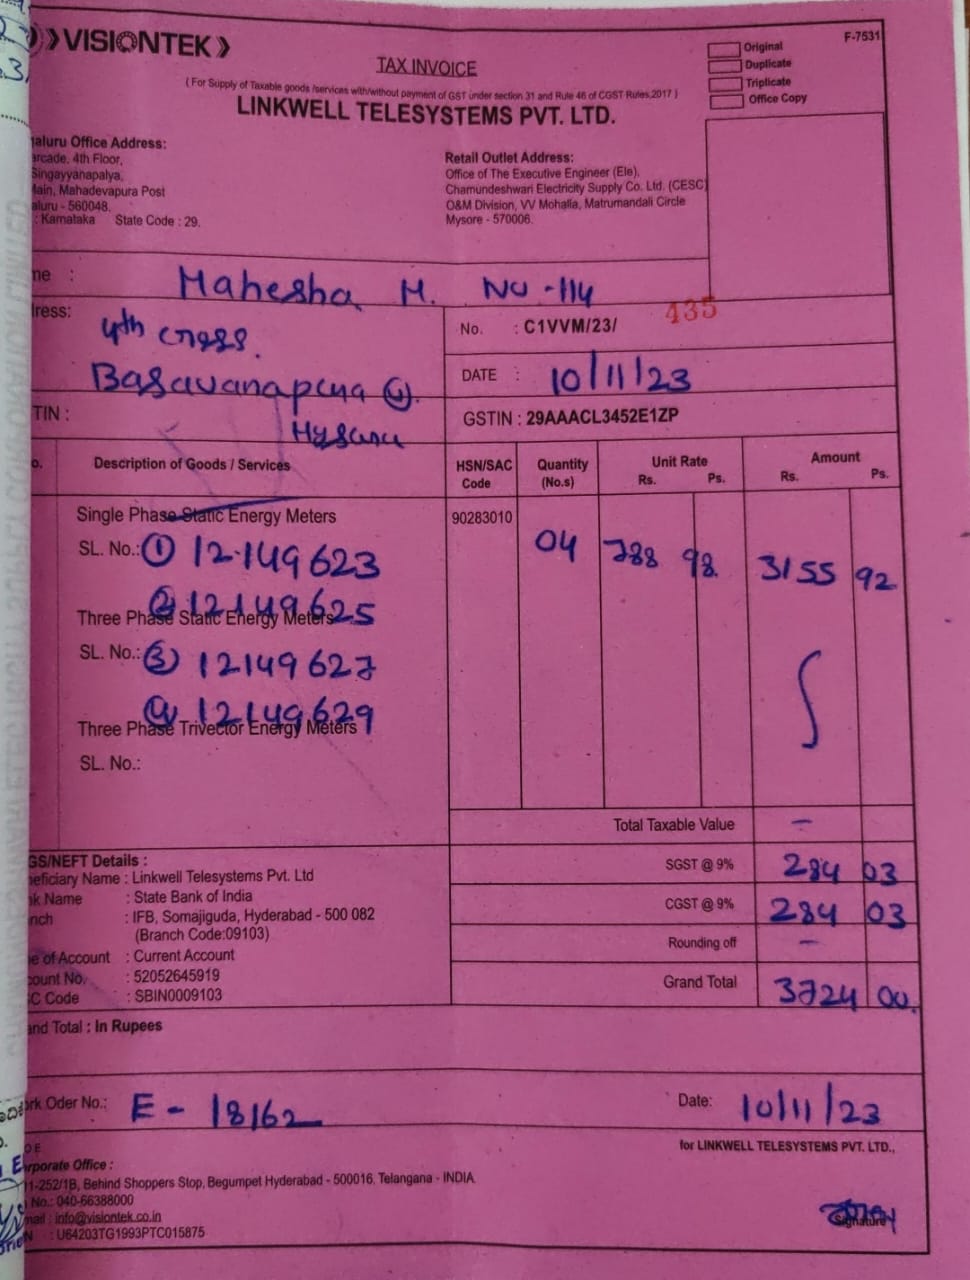 VISIONTEK
F-7531
TAX INVOICE
Original
Duplicate
Triplicate
Office Copy
( For Supply of Taxable goods /services with/without payment of GST under section 31 and Rule 46 of CGST Rules,2017 )
LINKWELL TELESYSTEMS PVT. LTD.
aluru Office Address:
arcade, 4th Floor,
Singayyanapalya,
Main, Mahadevapura Post
aluru - 560048.
: Karnataka State Code : 29.
Retail Outlet Address:
Office of The Executive Engineer (Ele),
Chamundeshwari Electricity Supply Co. Ltd. (CESC)
O&M Division, VV Mohalla, Matrumandali Circle
Mysore - 570006.
me : Mahesha M. No -114
ress: 4th cross.
Basavanapura
Mysuru
No. : C1VVM/23/ 435
DATE : 10/11/23
TIN :
GSTIN : 29AAACL3452E1ZP
o. Description of Goods / Services HSN/SAC Code Quantity (No.s) Unit Rate Rs. Ps. Amount Rs. Ps.
Single Phase Static Energy Meters 90283010
SL. No.: ① 12149623 04 788 98 3155 92
② 12149625
Three Phase Static Energy Meters
SL. No.: ③ 12149627
④ 12149629
Three Phase Trivector Energy Meters
SL. No.:
Total Taxable Value -
SGST @ 9% 284 03
CGST @ 9% 284 03
Rounding off -
Grand Total 3724 00.
GS/NEFT Details :
neficiary Name : Linkwell Telesystems Pvt. Ltd
nk Name : State Bank of India
nch : IFB, Somajiguda, Hyderabad - 500 082
(Branch Code:09103)
e of Account : Current Account
count No. : 52052645919
C Code : SBIN0009103
and Total : In Rupees
ork Oder No.: E - 18162
Date: 10/11/23
for LINKWELL TELESYSTEMS PVT. LTD.,
orporate Office :
11-252/1B, Behind Shoppers Stop, Begumpet Hyderabad - 500016. Telangana - INDIA
No.: 040-66388000
mail : info@visiontek.co.in
N : U64203TG1993PTC015875
Signature